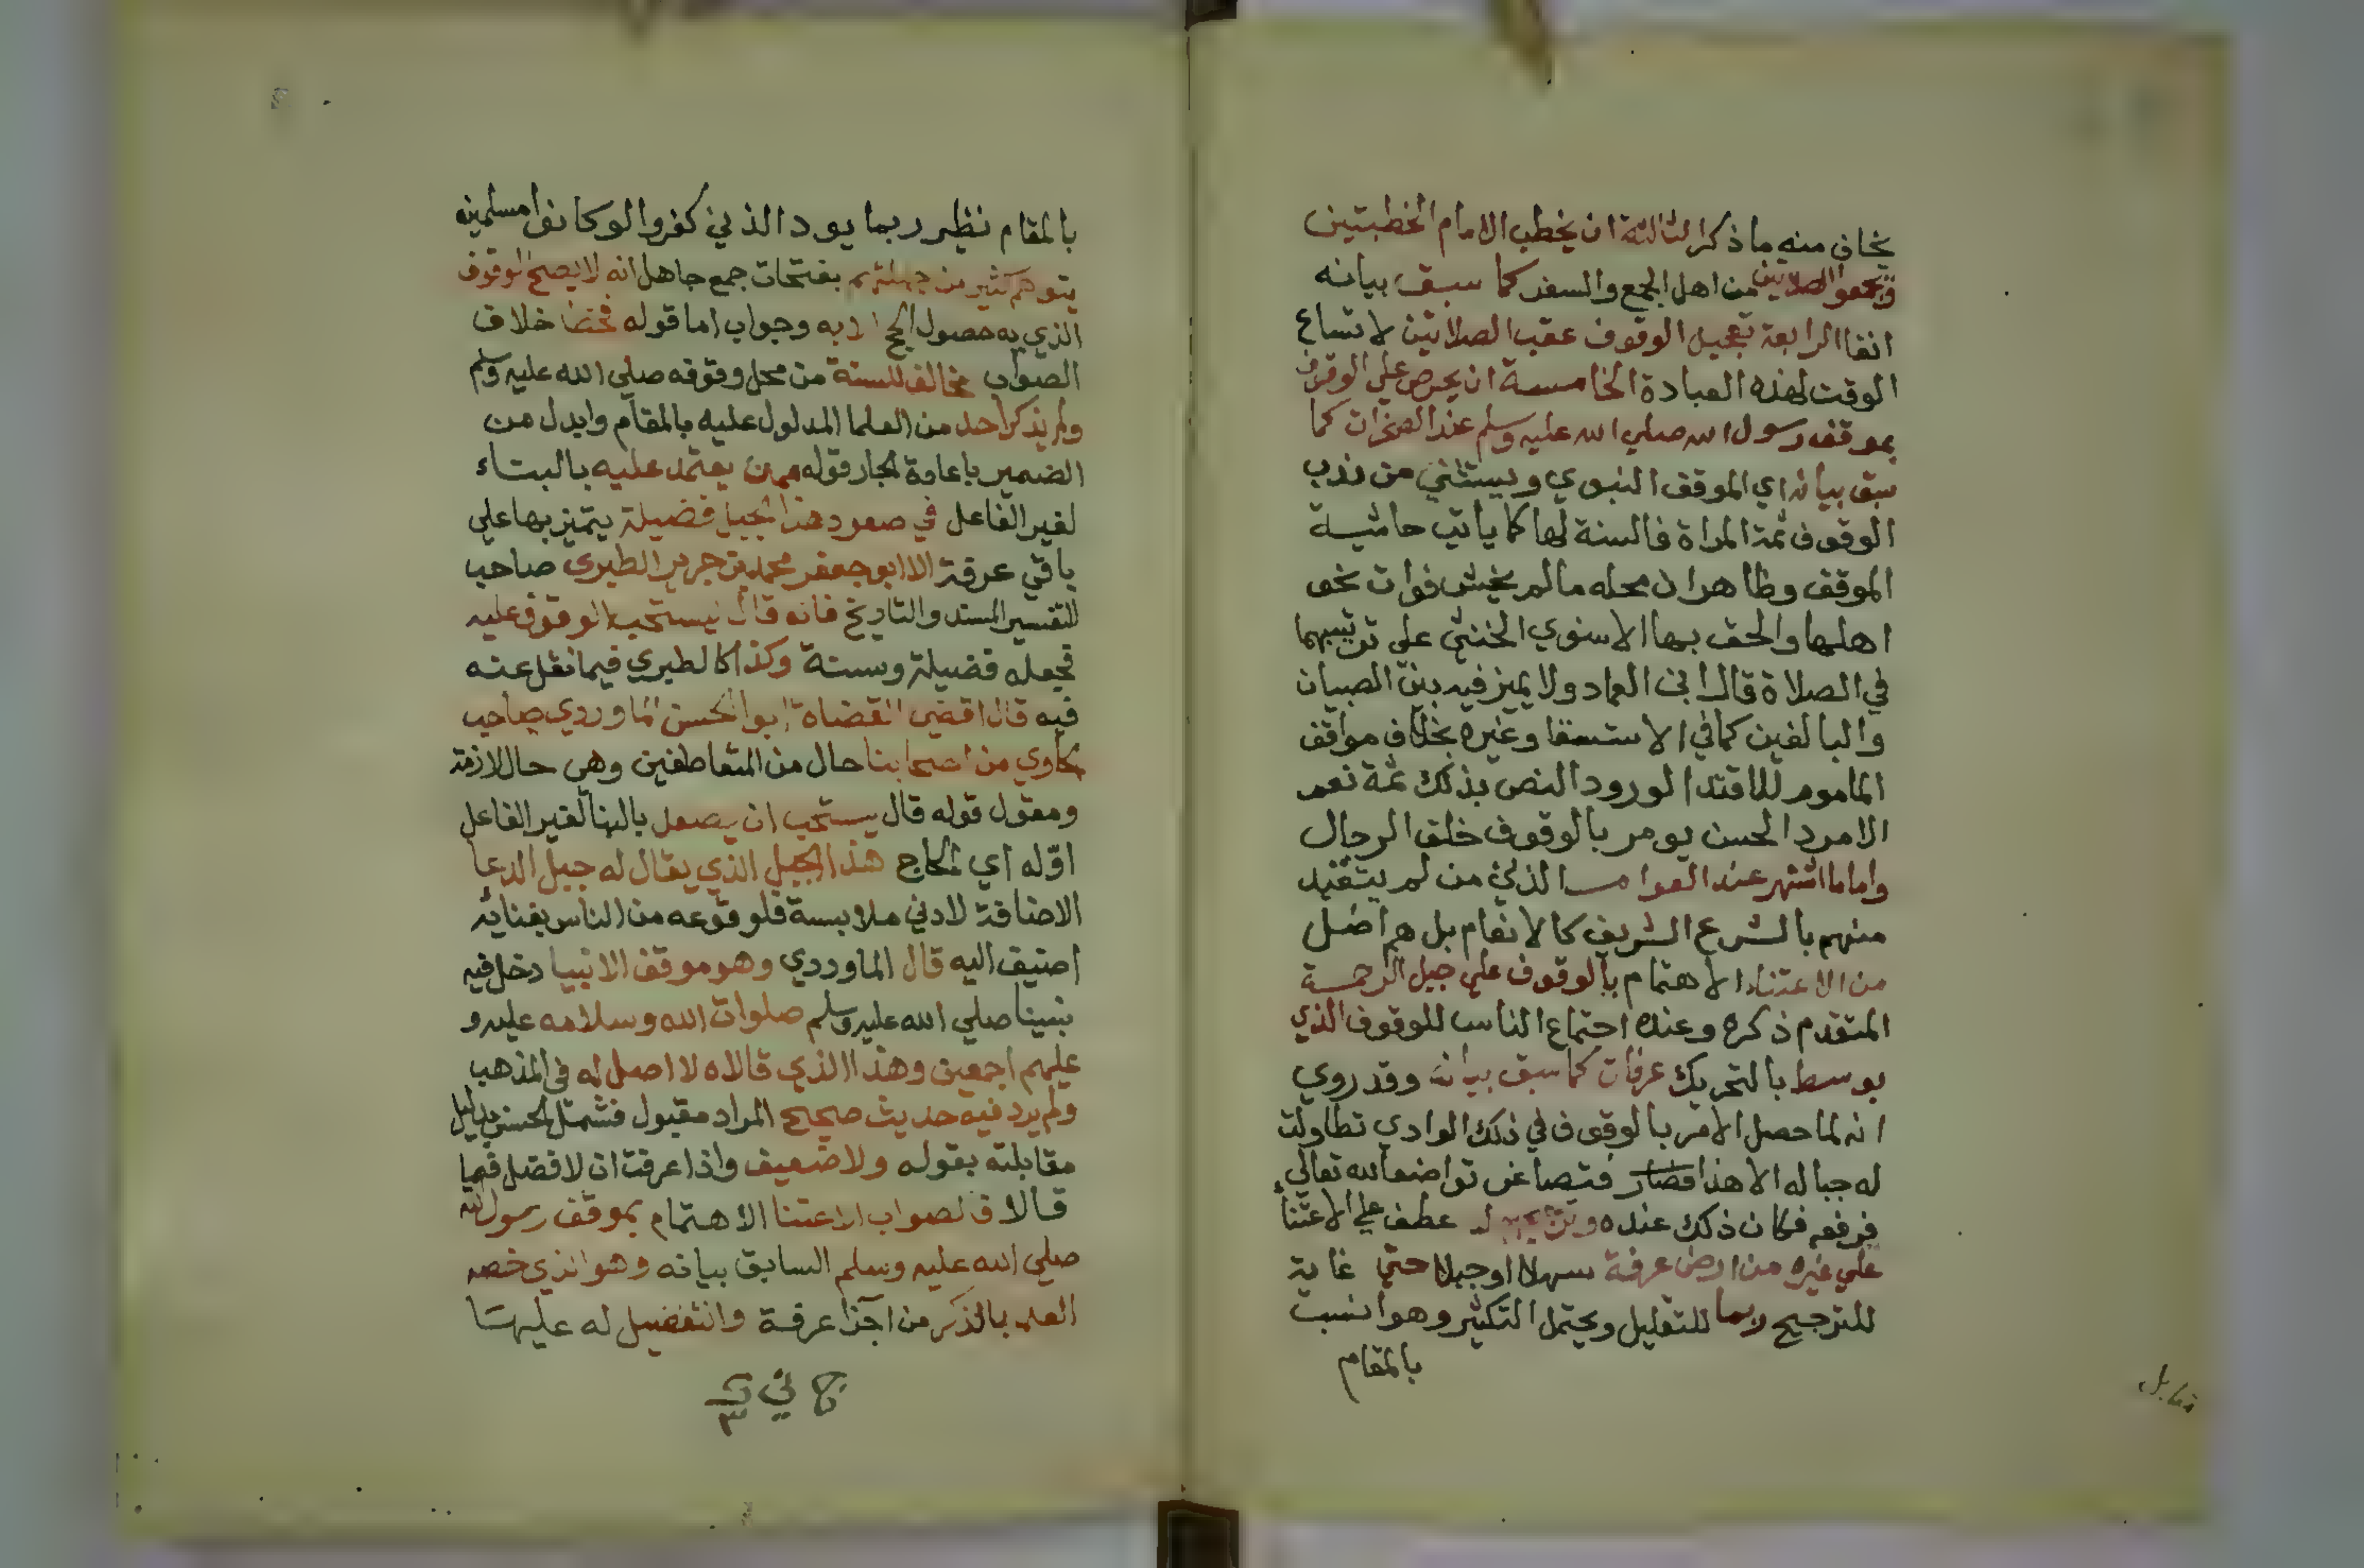 يخاف منه ما ذكر الثالثة ان يخطب الامام الخطبتين
ويجمعوا الصلاتين من اهل الجمع والسفر كما سبق بيانه
انفا الرابعة تعجيل الوقوف عقب الصلاتين لاتساع
الوقت لهذه العبادة الخامسة ان يحرص علي الوقوف
بموقف رسول الله صلي الله عليه وسلم عند الصخرات كما
سبق بيانه اي الموقف النبوي ويستثني من ندب
الوقوف ثمة المراة فالسنة لها كما ياتي حاشية
الموقف وظاهر ان محله ما لم يخش فوات نحو
اهلها والحق بها الاسنوي الخنثي علي ترتيبهما
في الصلاة قال ابن العماد ولا يميز فيه بين الصبيان
والبالغين كما في الاستسقا وغيره بخلاف مواقف
الماموم للاقتدا لورود النص بذلك ثمة نعم
الامرد الحسن يومر بالوقوف خلف الرجال
واما ما اشتهر عند العوام الذين من لم يتقيد
منهم بالشرع الشريف كالانعام بل هم اضل
من الاعتناء الاهتمام بالوقوف علي جبل الرحمة
المتقدم ذكره وعنده اجتماع الناس للوقوف الذي
بوسط بالتحريك عرفات كما سبق بيانه وقد روي
انه لما حصل الامر بالوقوف في ذلك الوادي تطاولت
له جباله الا هذا فتصاغر تواضعا لله تعالي
فرفعه فكان ذلك عنده وترجيحهم له عطف علي الاعتناء
علي غيره من ارض عرفة سهلا او جبلا حتي غاية
للترجيح ربما للتقليل ويحتمل التكثير وهو انسب
بالمقام
مقابل
بالمقام نظير ربما يود الذين كفروا لو كانوا مسلمين
يتوهم كثير من جهلتهم بفتحات جمع جاهل انه لا يصح الوقوف
الذي به حصول الحج الا به وجواب اما قوله فخطا خلاف
الصواب مخالف للسنة من محل وقوفه صلي الله عليه وسلم
ولم يذكر احد من العلما المدلول عليه بالمقام وابدل من
الضمير باعادة الجار قوله ممن يعتمد عليه بالبناء
لغير الفاعل في صعود هذا الجبل فضيلة يتميز بها علي
باقي عرفة الا ابو جعفر محمد بن جرير الطبري صاحب
التفسير المسند والتاريخ فانه قال يستحب الوقوف عليه
فجعله فضيلة وسنة وكذا كالطبري فيما نقل عنه
فيه قال اقضي القضاة ابو الحسن الماوردي صاحب
الحاوي من اصحابنا حال من المتعاطفين وهي حال لازمة
ومقول قوله قال يستحب ان يصعد بالبنا لغير الفاعل
اوله اي الحاج هذا الجبل الذي يقال له جبل الدعا
الاضافة لادني ملابسة فلوقوعه من الناس بفنائه
اضيف اليه قال الماوردي وهو موقف الانبيا دخل فيه
نبينا صلي الله عليه وسلم صلوات الله وسلامه عليه و
عليهم اجمعين وهذا الذي قالاه لا اصل له في المذهب
ولم يرد فيه حديث صحيح المراد مقبول فشمل الحسن بدليل
مقابلته بقوله ولا ضعيف واذا عرفت ان لا فضل فيما
قالا فالصواب الاعتنا الاهتمام بموقف رسول الله
صلي الله عليه وسلم السابق بيانه وهو الذي خصه
العلما بالذكر من اجزا عرفة والتفضيل له عليها